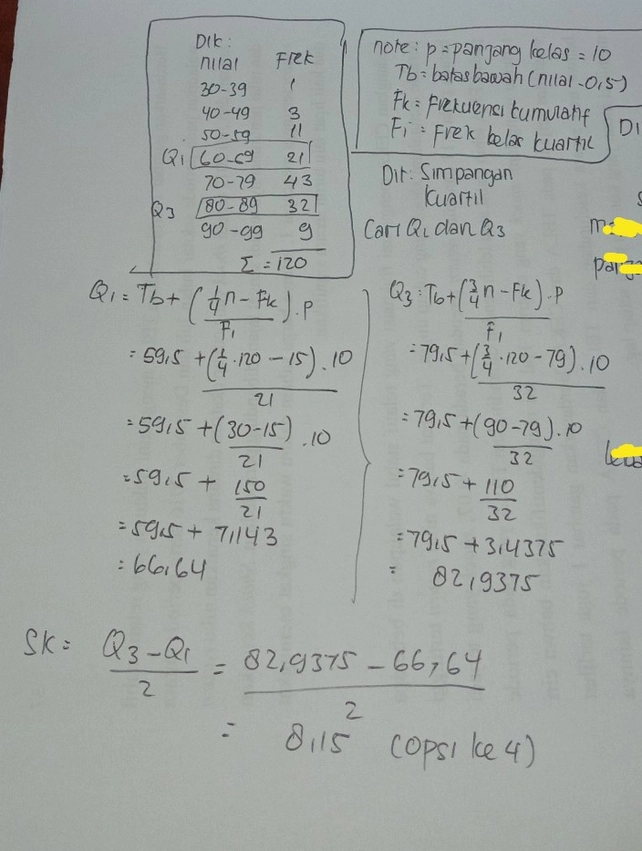 Dik:
nilai Frek
30-39 1
40-49 3
50-59 11
Q1 60-69 21
70-79 43
Q3 80-89 32
90-99 9
Σ = 120
note: p = panjang kelas = 10
Tb = batas bawah (nilai - 0,5)
Fk = Frekuensi kumulatif
Fi = Frek kelas kuartil
Di
Dit: Simpangan
kuartil
Cari Q1 dan Q3
Q1 = Tb + (1/4 n - Fk) . p
Fi
= 59,5 + (1/4 . 120 - 15) . 10
21
= 59,5 + (30-15) . 10
21
= 59,5 + 150
21
= 59,5 + 7,143
= 66,64
Q3 : Tb + (3/4 n - Fk) . p
Fi
= 79,5 + (3/4 . 120 - 79) . 10
32
= 79,5 + (90-79) . 10
32
= 79,5 + 110
32
= 79,5 + 3,4375
= 82,9375
SK = Q3 - Q1 = 82,9375 - 66,64
2 2
= 8,15 (opsi ke 4)